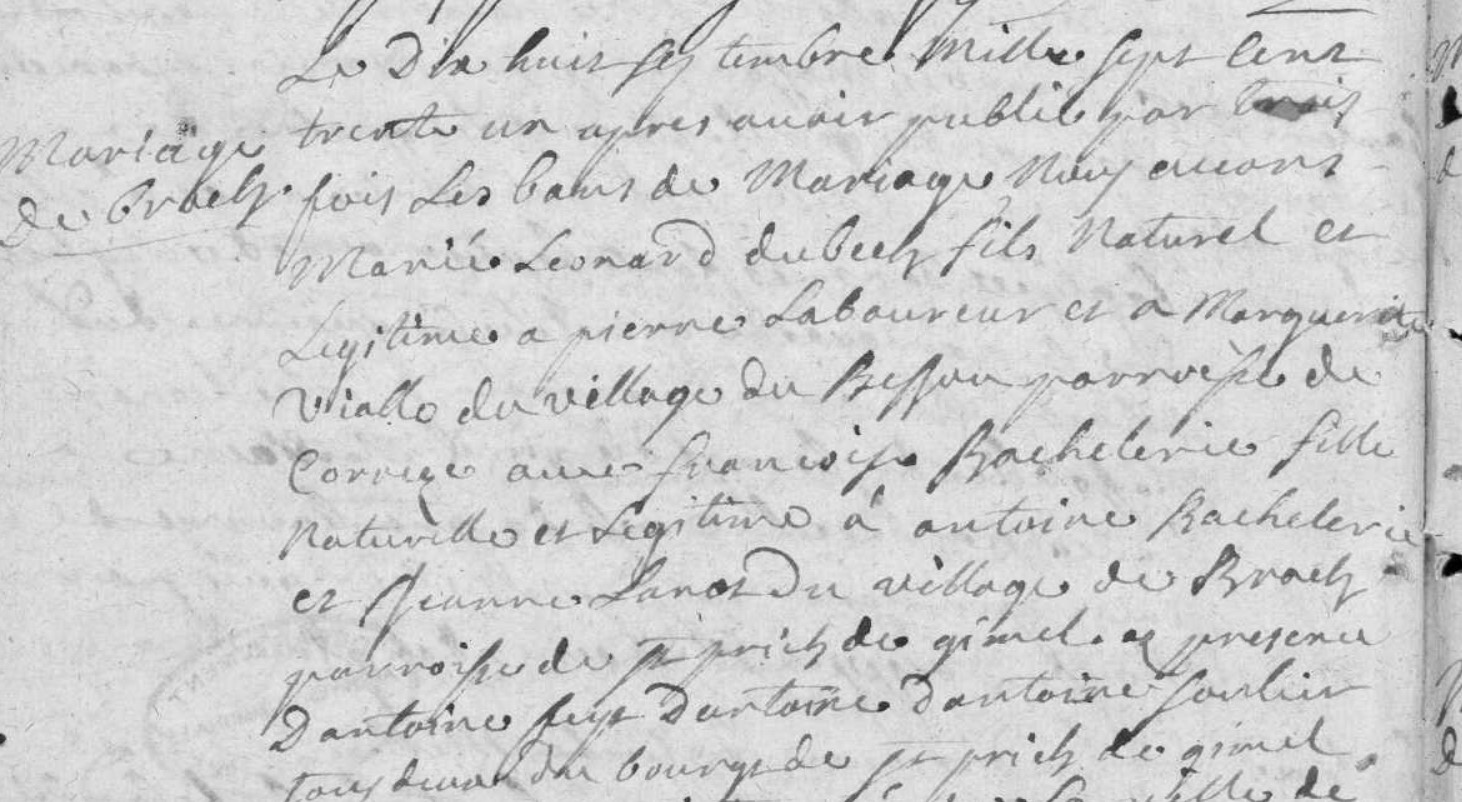 Le Dix huit septembre Mille sept Cent
Mariage
de Brach
trente un apres auoir publié par trois
fois Les bans de Mariage Nous auons
Marié Leonard dubech fils Naturel et
Legitime a pierre Laboureur et a Marguerite
Vialle du village du Bessou parroisse de
Correze auec francoise Bachelerie fille
Naturelle et Legitime à antoine Bachelerie
et Jeanne Lanot Du village de Brach
parroisse de st priech de gimel presence
Dantoine Dantoine Dantoine soulier
tous deux du bourg de st priech de gimel
de